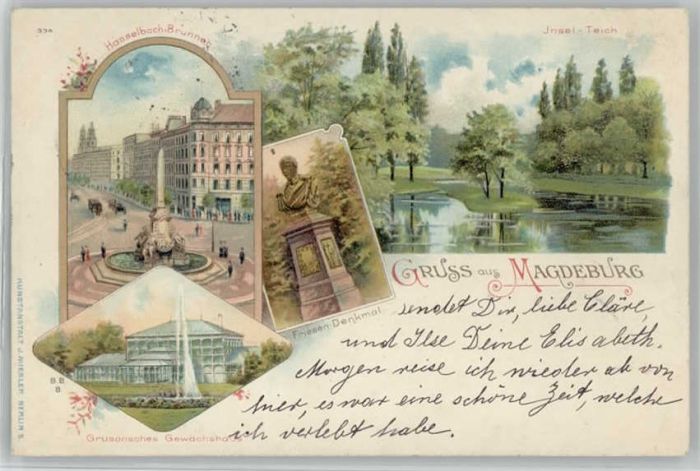 334
Hasselbach-Brunnen
Insel-Teich
Friesen-Denkmal
GRUSS aus MAGDEBURG
sendet Dir, liebe Cläre,
und Ilse Deine Elisabeth.
Morgen reise ich wieder ab von
hier, es war eine schöne Zeit, welche
ich verlebt habe.
Grusonisches Gewächshaus
B.B
B
KUNSTANSTALT J. MIESLER, BERLIN S.